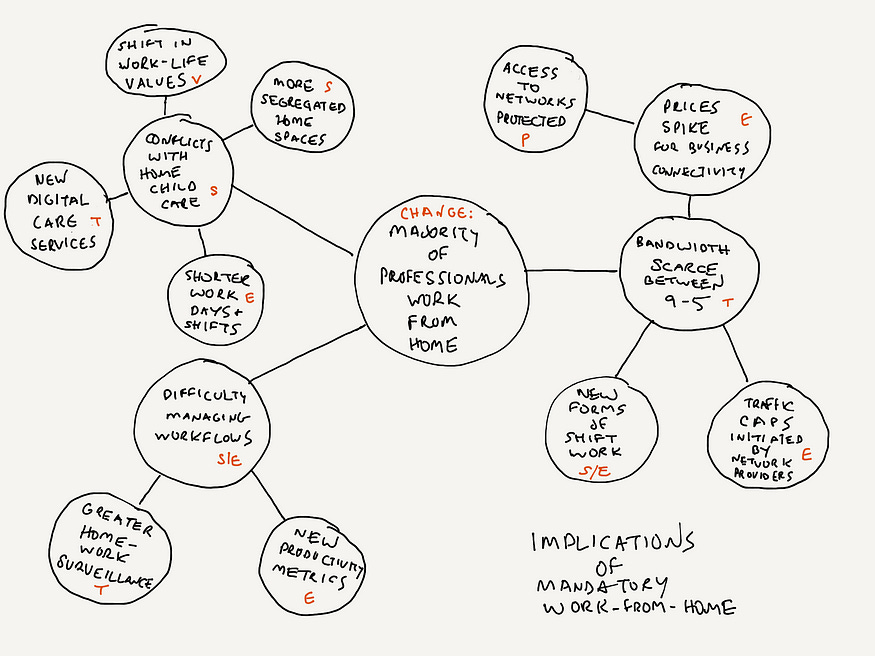 SHIFT IN
WORK-LIFE
VALUES V
MORE S
SEGREGATED
HOME
SPACES
CONFLICTS
WITH
HOME
CHILD S
CARE
NEW
DIGITAL
CARE T
SERVICES
SHORTER
WORK E
DAYS +
SHIFTS
CHANGE:
MAJORITY
OF
PROFESSIONALS
WORK
FROM
HOME
ACCESS
TO
NETWORKS
PROTECTED
P
PRICES E
SPIKE
FOR BUSINESS
CONNECTIVITY
BANDWIDTH
SCARCE
BETWEEN
9-5 T
NEW
FORMS
OF
SHIFT
WORK
S/E
TRAFFIC
CAPS
INITIATED
BY E
NETWORK
PROVIDERS
DIFFICULTY
MANAGING
WORKFLOWS
S/E
GREATER
HOME-
WORK
SURVEILLANCE
T
NEW
PRODUCTIVITY
METRICS
E
IMPLICATIONS
OF
MANDATORY
WORK-FROM-HOME